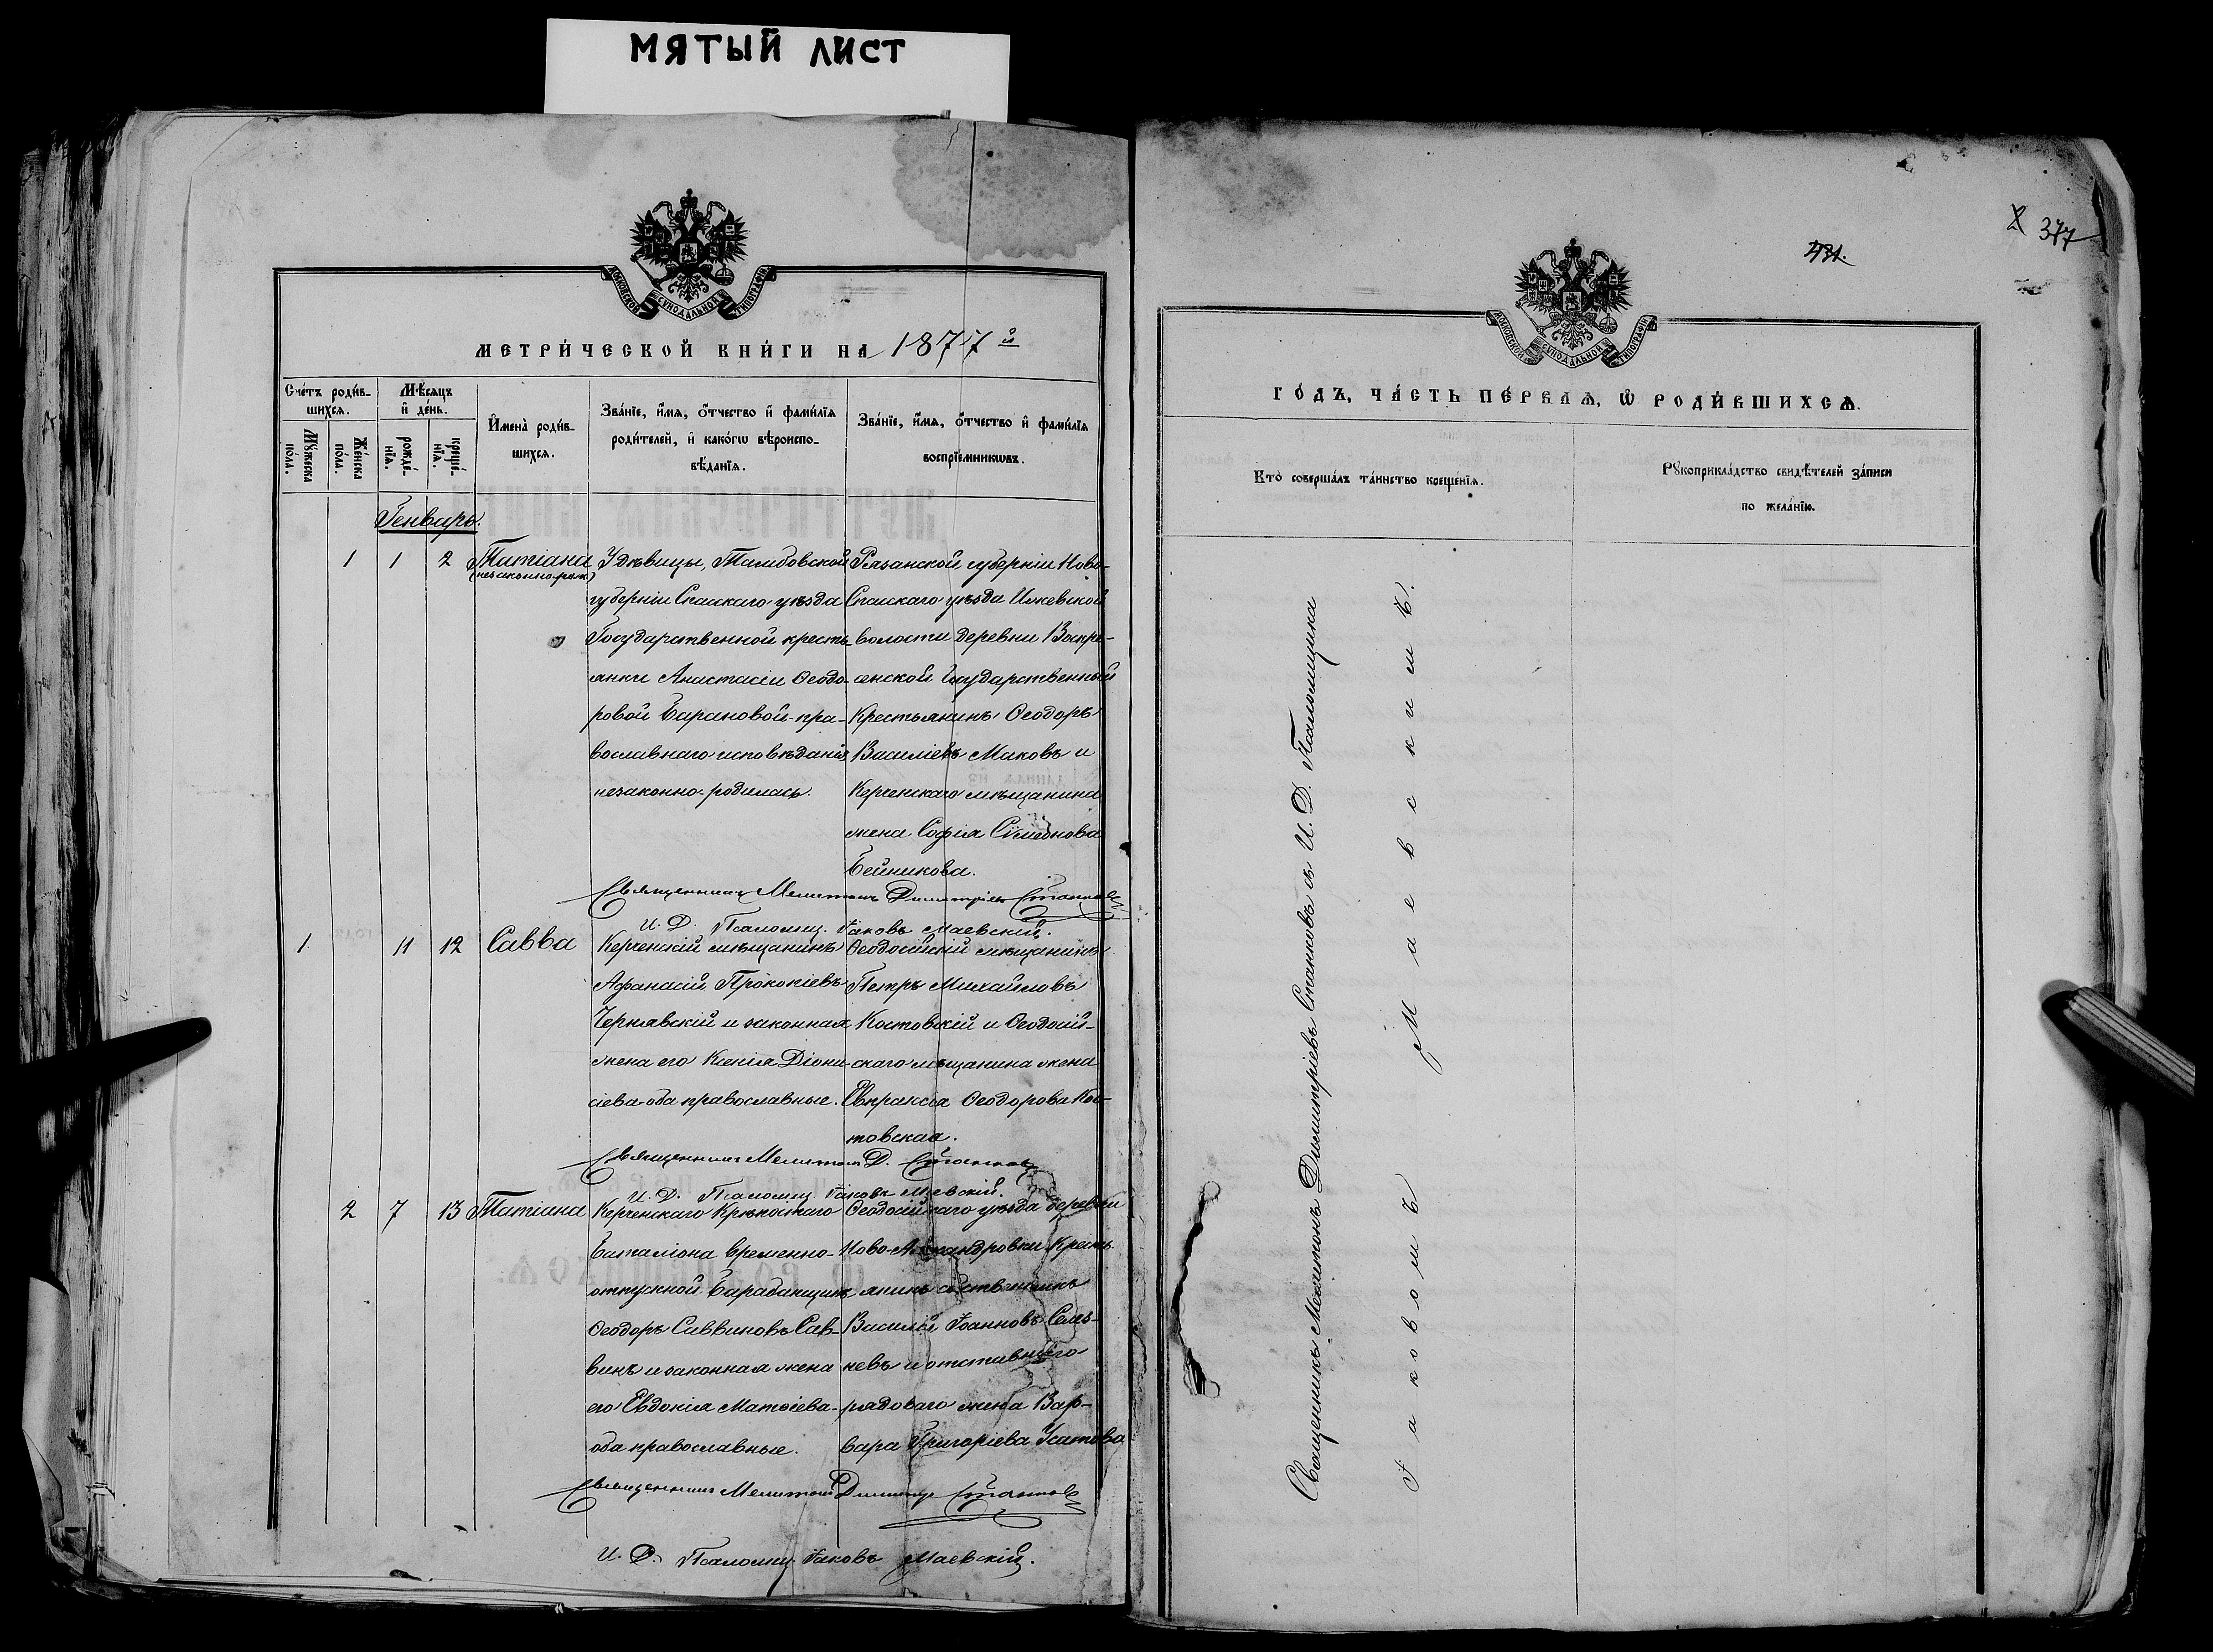 МЯТЫЙ ЛИСТ
МОСКОВСКОЙ СѴНОДАЛЬНОЙ ТИПОГРАФІИ
МЕТРИ́ЧЕСКОЙ КНИ́ГИ НА 1877й
Сче́тъ роди́в-
шихсѧ.
Мѣ́сѧцъ
и҆ де́нь.
И҆мена̀ роди́в-
шихсѧ.
Зва́нїе, и҆́мѧ, ѻ҆́тчество и҆ фами́лїѧ
роди́телей, и҆ како́гѡ вѣроиспо-
вѣ́данїѧ.
Зва́нїе, и҆́мѧ, ѻ҆́тчество и҆ фами́лїѧ
воспрїе́мникѡвъ.
Мꙋ́жеска
по́ла.
Же́нска
по́ла.
рожде́-
нїѧ.
креще́-
нїѧ.
Генварь.
1 1 2 Татіана
(незаконно-рож.)
У дѣвицы, Тамбовской
губерніи Спасскаго уѣзда
Государственной кресть-
янки Анастасіи Ѳеодо-
ровой Барановой-пра-
вославнаго исповѣданія
незаконно-родилась.
Рязанской губерніи Ново-
Спасскаго уѣзда Ижевской
волости деревни Воскре-
сенской Государственный
Крестьянинъ Ѳеодоръ
Василіевъ Маковъ и
Керченскаго мѣщанина
жена Софія Сѵмеонова
Бейникова.
Священникъ Мелитонъ Димитріевъ Станковъ
И. Д. Псаломщ. Іаковъ Маевскій.
1. 11 12 Савва
Керченскій мѣщанинъ
Аѳанасій Прокопіевъ
Чернявскій и законная
жена его Ксенія Діони-
сіева-оба православные.
Ѳеодосійскій мѣщанинъ
Петръ Михайловъ
Костовскій и Ѳеодосій-
скаго мѣщанина жена
Евпраксія Ѳеодорова Кос-
товская.
Священникъ Мелитонъ Д. Станковъ
И. Д. Псаломщ. Іаковъ Маевскій.
2 7 13 Татіана
Керченскаго Крѣпостнаго
Баталіона временно-
отпускной Барабанщикъ
Ѳеодоръ Саввиновъ Сав-
винъ и законная жена
его Евдокія Матѳіева-
оба православные.
Ѳеодосійскаго уѣзда деревни
Ново-Александровки Кресть-
янинъ собственникъ
Василій Іоанновъ
невъ и отставнаго
рядоваго жена Вар-
вара Григоріева Усатова
Священникъ Мелитонъ Димитр Станковъ
И. Д. Псаломщ. Іаковъ Маевскій.
377
431.
МОСКОВСКОЙ СѴНОДАЛЬНОЙ ТИПОГРАФІИ
ГО́ДЪ, ЧА́СТЬ ПЕ́РВАѦ, Ѡ҆ РОДИ́ВШИХСѦ.
Кто̀ соверша́лъ та́инство креще́нїѧ.
Рꙋкоприкла́дство свидѣ́телей за́писи
по жела́нїю.
Священникъ Мелитонъ Димитріевъ Станковъ съ И. Д. Псаломщика
Іаковомъ Маевскимъ.